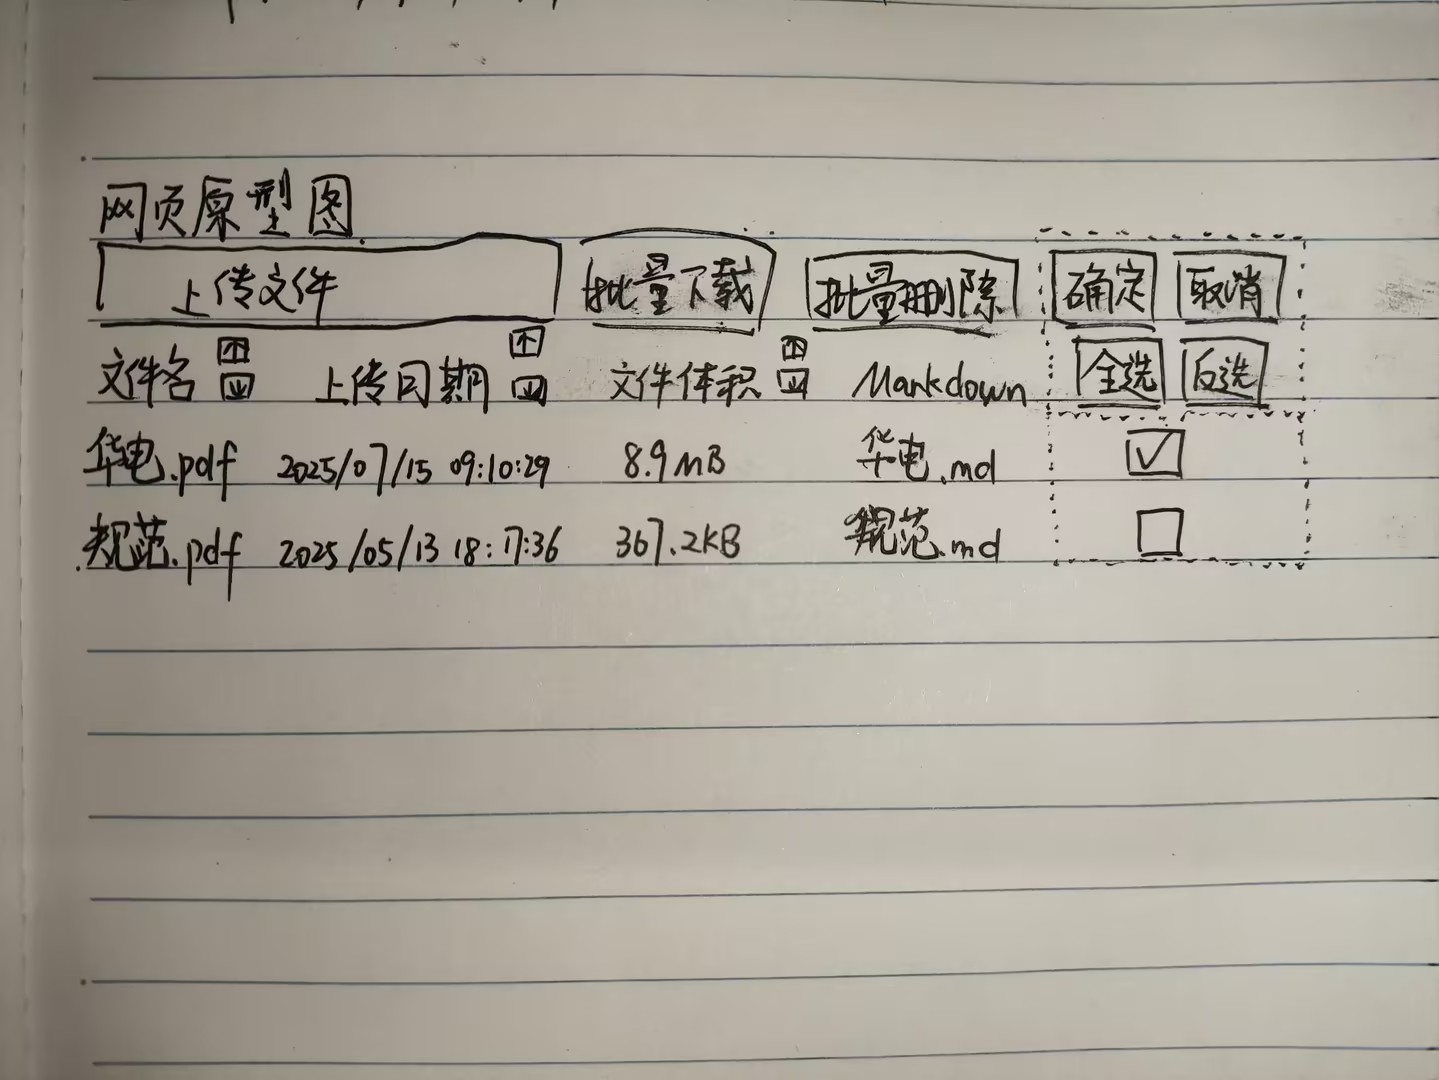 网页原型图
上传文件 批量下载 批量删除 确定 取消
文件名 ↑ ↓ 上传日期 ↑ ↓ 文件体积 ↑ ↓ Markdown 全选 反选
华电.pdf 2025/07/15 09:10:29 8.9MB 华电.md
规范.pdf 2025/05/13 18:17:36 367.2KB 规范.md